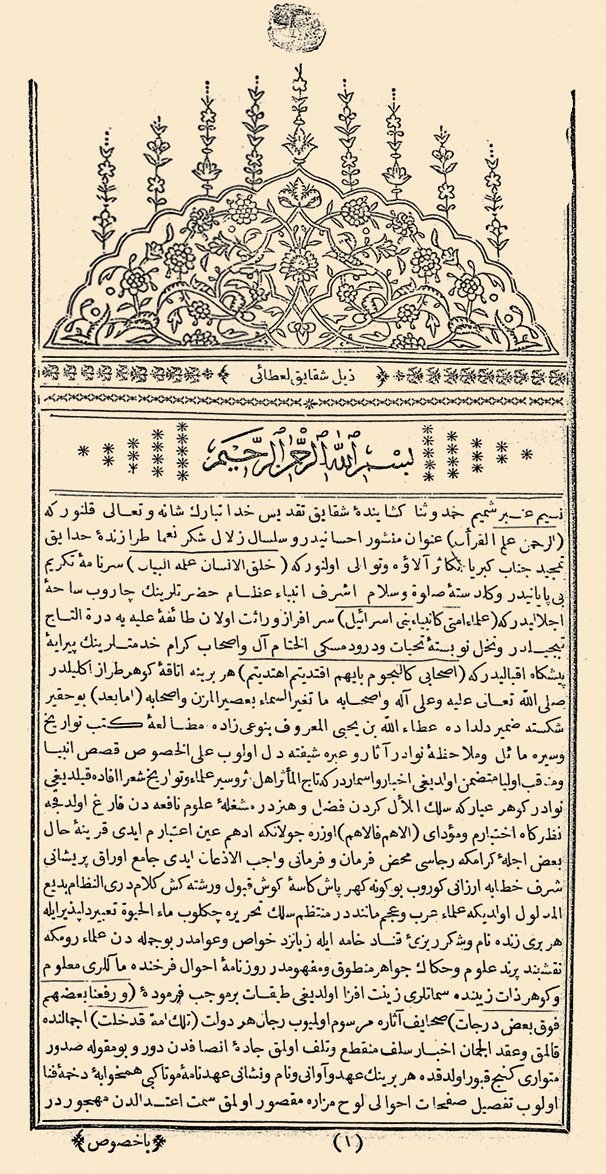 ذيل شقايق لعطائى
بسم الله الرحمن الرحيم
نسيم عنبر شميم حمد وثنا كشاينده شقايق تقديس خدا تبارك شانه وتعالى قلنور كه
(الرحمن علم القرأن) عنوان منشور احسانيدر وسلسال زلال شكر نعما طرازندهٔ حدايق
تمجيد جناب كبريا تكاثر آلاؤه وتوالى اولنور كه (خلق الانسان علمه البيان) سرنامهٔ تكريم
بى پايانيدر وكلدستهٔ صلوة وسلام اشرف انبياء عظام حضرتلرينك چاروب ساحهٔ
اجلاليدر كه (علماء امتى كانبياء بنى اسرائيل) سرافراز وراثت اولان طائفهٔ عليه يه درة التاج
تبجيلدر ونخل نوبستهٔ تحيات ودرود مسكى الختام آل واصحاب كرام خدمتلرينك پيرايهٔ
پيشكاه اقباليدر كه (اصحابى كالنجوم بايهم اقتديتم اهتديتم) هر برينه اتاقهٔ كوهر طراز اكليلدر
صلى الله تعالى عليه وعلى آله واصحابه ما تغير السماء بعصير المزن واصحابه (اما بعد) بو حقير
شكسته ضمير دلداده عطاء الله بن يحيى المعروف بنوعى زاده مطالعهٔ كتب تواريخ
وسيره مائل وملاحظهٔ نوادر آثار وعبره شيفته دل اولوب على الخصوص قصص انبيا
ومناقب اوليا متضمن اولديغى اخبار واسماردر كه تاج المأثر اهل ثر وسير علماء وتواريخ شعرا افاده قيلديغى
نوادر كوهر عياركه سلك اللأل كردن فضل وهنردر مشغلهٔ علوم نافعه دن فارغ اولدقجه
نظركاه اختيارم ومؤداى (الاهم فالاهم) اوزره جولانكه ادهم عين اعتبارم ايدى قرينهٔ حال
بعض اجلهٔ كرامكه رجاسى محض فرمان وفرمانى واجب الاذعان ايدى جامع اوراق پريشانى
شرف خطابه ارزانى كوروب بو كونه كهر پاش كاسهٔ كوش قبول ورشته كش كلام درى النظام بديع
المدلول اولديكه علماء عرب وعجم مانند در منتظم سلك تحريره چكلوب ماء الحيوة تعبير دلپذير ايله
هر برى زنده نام وشكرريزئ قناد خامه ايله زبانزد خواص وعوامدر بو جمله دن علماء رومكه
نقشبند پرند علوم وحكاك جواهر منطوق ومفهومدر روزنامهٔ احوال فرخنده مآللرى معلوم
وكوهر ذات زينده سماتلرى زينت افزا اولديغى طبقات بر موجب فرمودهٔ (ورفعنا بعضهم
فوق بعض درجات) صحايف آثاره مرسوم اولميوب رجال هر دولت (تلك امة قد خلت) اجمالنده
قالمق وعقد الجمان اخبار سلف منقطع وتلف اولمق جادهٔ انصافدن دور وبو مقوله صدور
متوارى كنج قبور اولدقده هر برينك عهد وآوانى ونام ونشانى عهدنامهٔ موتاكبى همخوابهٔ دخمهٔ فنا
اولوب تفصيل صفحات احوالى لوح مزاره مقصور اولمق سمت اعتدالدن مهجوردر
(١)
باخصوص